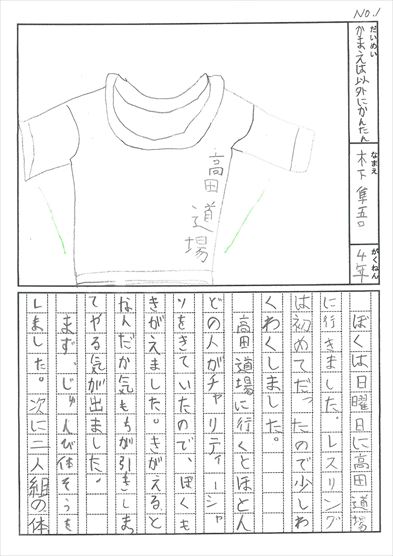 NO.1
だいめい
かまえは以外にかんたん
なまえ
木下 隼吾
がくねん
4年
高田道場
ぼくは日曜日に高田道場
に行きました。レスリング
は初めてだったので少しわ
くわくしました。
高田道場に行くとほとん
どの人がチャリティーシャ
ツをきていたので、ぼくも
きがえました。きがえると
なんだか気もちが引きしま
てやる気が出ました。
まず、じゅんび体そうを
しました。次に二人組の体